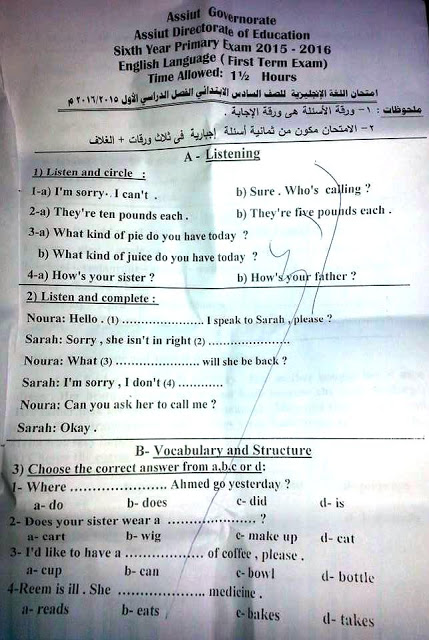 Assiut Governorate
Assiut Directorate of Education
Sixth Year Primary Exam 2015 - 2016
English Language ( First Term Exam)
Time Allowed: 1½ Hours
امتحان اللغة الإنجليزية للصف السادس الابتدائي الفصل الدراسي الأول ٢٠١٦/٢٠١٥ م
ملحوظات : ١- ورقة الأسئلة هى ورقة الإجابة .
٢- الامتحان مكون من ثمانية أسئلة إجبارية فى ثلاث ورقات + الغلاف
A - Listening
1) Listen and circle :
1-a) I'm sorry. I can't . b) Sure . Who's calling ?
2-a) They're ten pounds each . b) They're five pounds each .
3-a) What kind of pie do you have today ?
b) What kind of juice do you have today ?
4-a) How's your sister ? b) How's your father ?
2) Listen and complete :
Noura: Hello . (1) ........................ I speak to Sarah , please ?
Sarah: Sorry , she isn't in right (2) ........................
Noura: What (3) ........................ will she be back ?
Sarah: I'm sorry , I don't (4) ............
Noura: Can you ask her to call me ?
Sarah: Okay .
B- Vocabulary and Structure
3) Choose the correct answer from a,b,c or d:
1- Where ........................ Ahmed go yesterday ?
a- do b- does c- did d- is
2- Does your sister wear a ...................... ?
a- cart b- wig c- make up d- cat
3- I'd like to have a ...................... of coffee , please .
a- cup b- can c- bowl d- bottle
4-Reem is ill . She ...................... medicine .
a- reads b- eats c- bakes d- takes